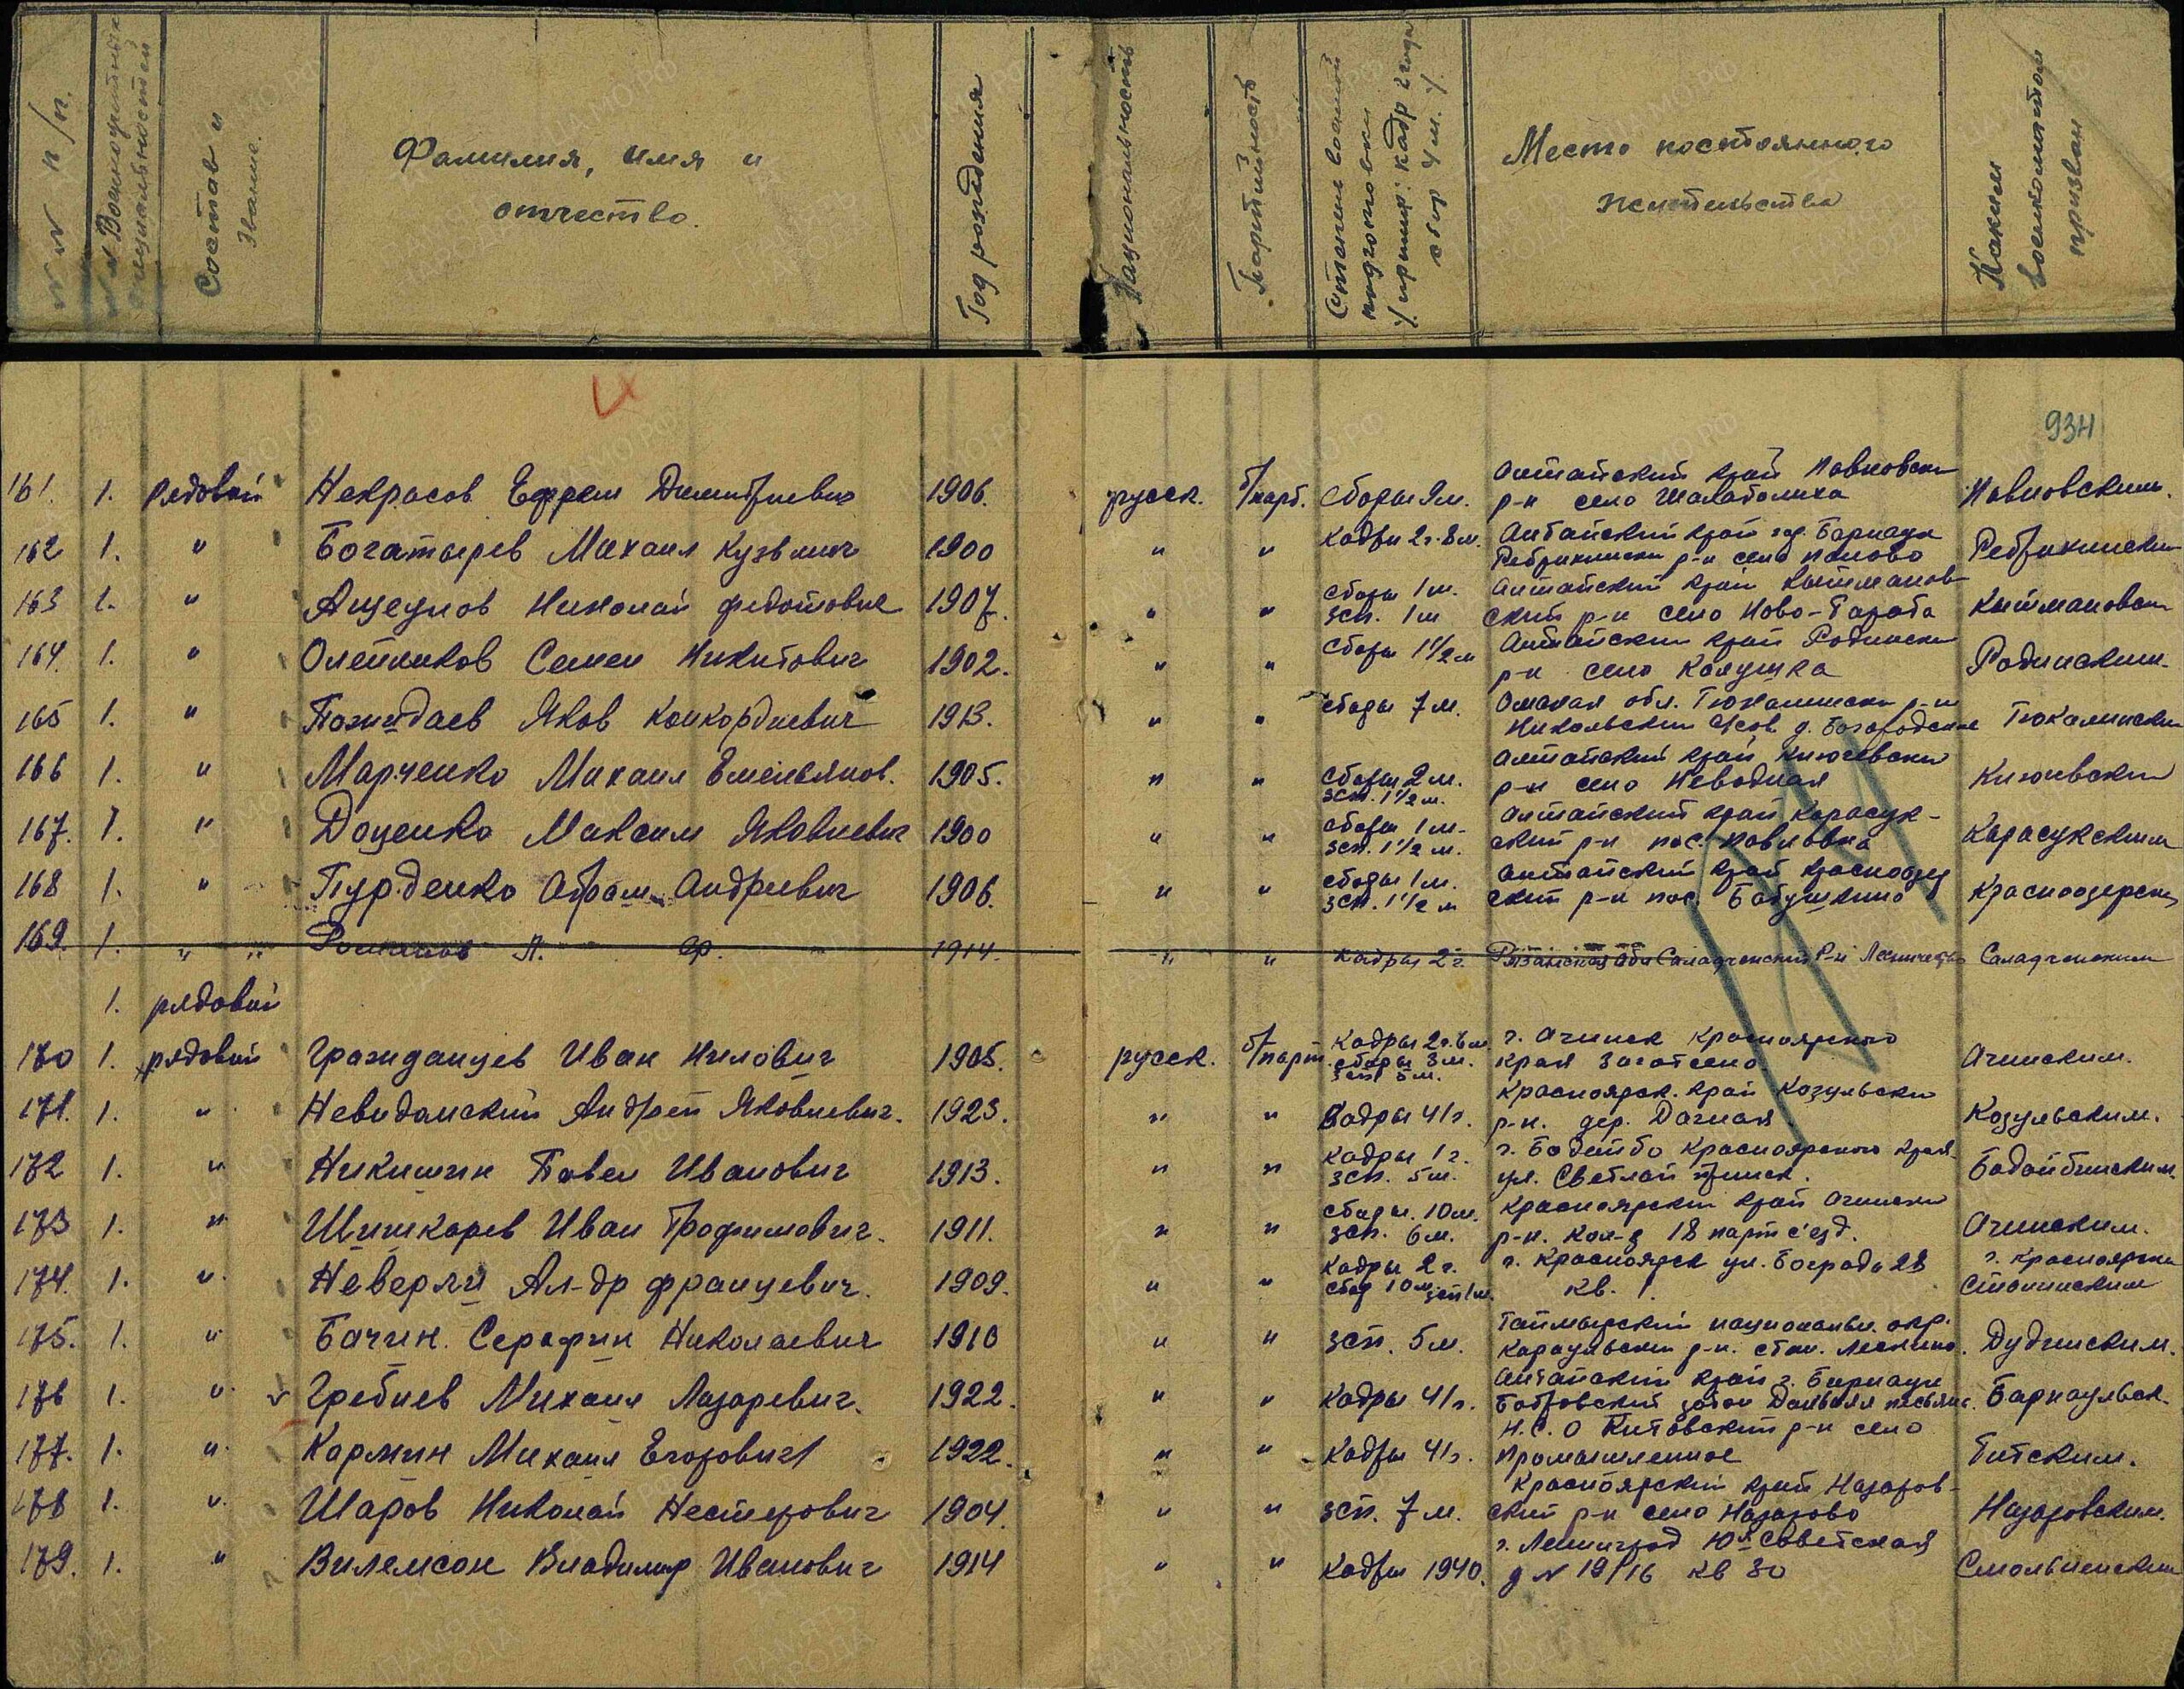 №№ п/п.
№№ Военноучетных специальностей
Состав и звание.
Фамилия, имя и
отчество.
Год рождения
Национальность
Партийность
Степень военной подготовки /. пример: кадр 2 года сбор 4 м. /.
Место постоянного
жительства
Каким военкоматом призван
934
161. 1. рядовой Некрасов Ефрем Дмитриевич 1906. русск. б/парт. сборы 9 м. Алтайский край Павловски
р-н село Шалаболиха Павловским.
162 1. " Богатырев Михаил Кузьмич 1900 " " кадры 2 г. 8 м. Алтайский край гор. Барнаул
Ребрихински р-н село Паново Ребрихински
163 1. " Ащеулов Николай Федотович 1907. " " сборы 1 м. Алтайский край Кытманов-
зап. 1 м ский р-н село Ново-Тараба Кытмановски
164. 1. " Олейников Семен Никитович 1902. " " сборы 1 1/2 м Алтайский край Родински
р-н село Каяушка Родинским.
165 1. " Пожидаев Яков Конкордиевич 1913. " " сборы 7 м. Омская обл. Тюкалински р-н
Никольский с/сов. д. Богородское Тюкалински
166 1. " Марченко Михаил Емельянов. 1905. " " сборы 2 м. Алтайский край Ключевски
зап. 1 1/2 м. р-н село Неводная Ключевски
167. 1. " Доценко Максим Яковлевич 1900 " " сборы 1 м. Алтайский край Карасук-
зап. 1 1/2 м. ский р-н пос. Павловка Карасукским
168 1. " Пурденко Абрам Андреевич 1906. " " сборы 1 м. Алтайский край Красноозер
зап. 1 1/2 м ский р-н пос. Бабушкино Красноозерски
169. 1. " " Романов П. Ф. 1914. " " кадры 2 г. Рязанская обл Солодченский р-н Солодченским
1. рядовой
170 1. рядовой Гражданцев Иван Нилович 1905. русск. б/парт. кадры 2 г. 6 м г. Ачинск Красноярского
сборы 3 м. края Заготсено. Ачинским.
зап 5 м.
171. 1. " Невидомский Андрей Яковлевич. 1923. " " Кадры 41 г. Красноярск. край Козульски
р-н. дер. Дачная Козульским.
172 1. " Никишин Павел Иванович 1913. " " кадры 1 г. г. Бодайбо Красноярского края
зап. 5 м. ул. Светлай прииск. Бодайбинским.
173 1. " Шишкарев Иван Трофимович. 1911. " " сборы. 10 м. Красноярский край Ачински
зап. 6 м. р-н. кол-з 18 партс'езд. Ачинским.
174. 1. " Неверли Ал-др Францевич. 1909. " " кадры 2 г. г. Красноярск ул. Бограда 28 г. Красноярски
сбор 10 м зап 1 м. кв. 1. Сталинским
175. 1. " Бачин. Серафим Николаевич 1910 " " зап. 5 м. Таймырский национальн. окр.
Караульский р-н. стан. Лескино. Дудинским.
176 1. " Гребнев Михаил Лазаревич. 1922. " " кадры 41 г. Алтайский край г. Барнаул
Бобровский затон Барнаульск.
177. 1. " Кармин Михаил Егорович 1922. " " кадры 41 г. Н.С.О Титовский р-н село
Промышленное Титским.
178 1. " Шаров Николай Нестерович 1904. " " зап. 7 м. Красноярский край Назаров-
ский р-н село Назарово Назаровским.
179. 1. " Вилемсон Владимир Иванович 1914 " " Кадры 1940. г. Ленинград 10я Советская
д № 19/16 кв 30 Смольненским